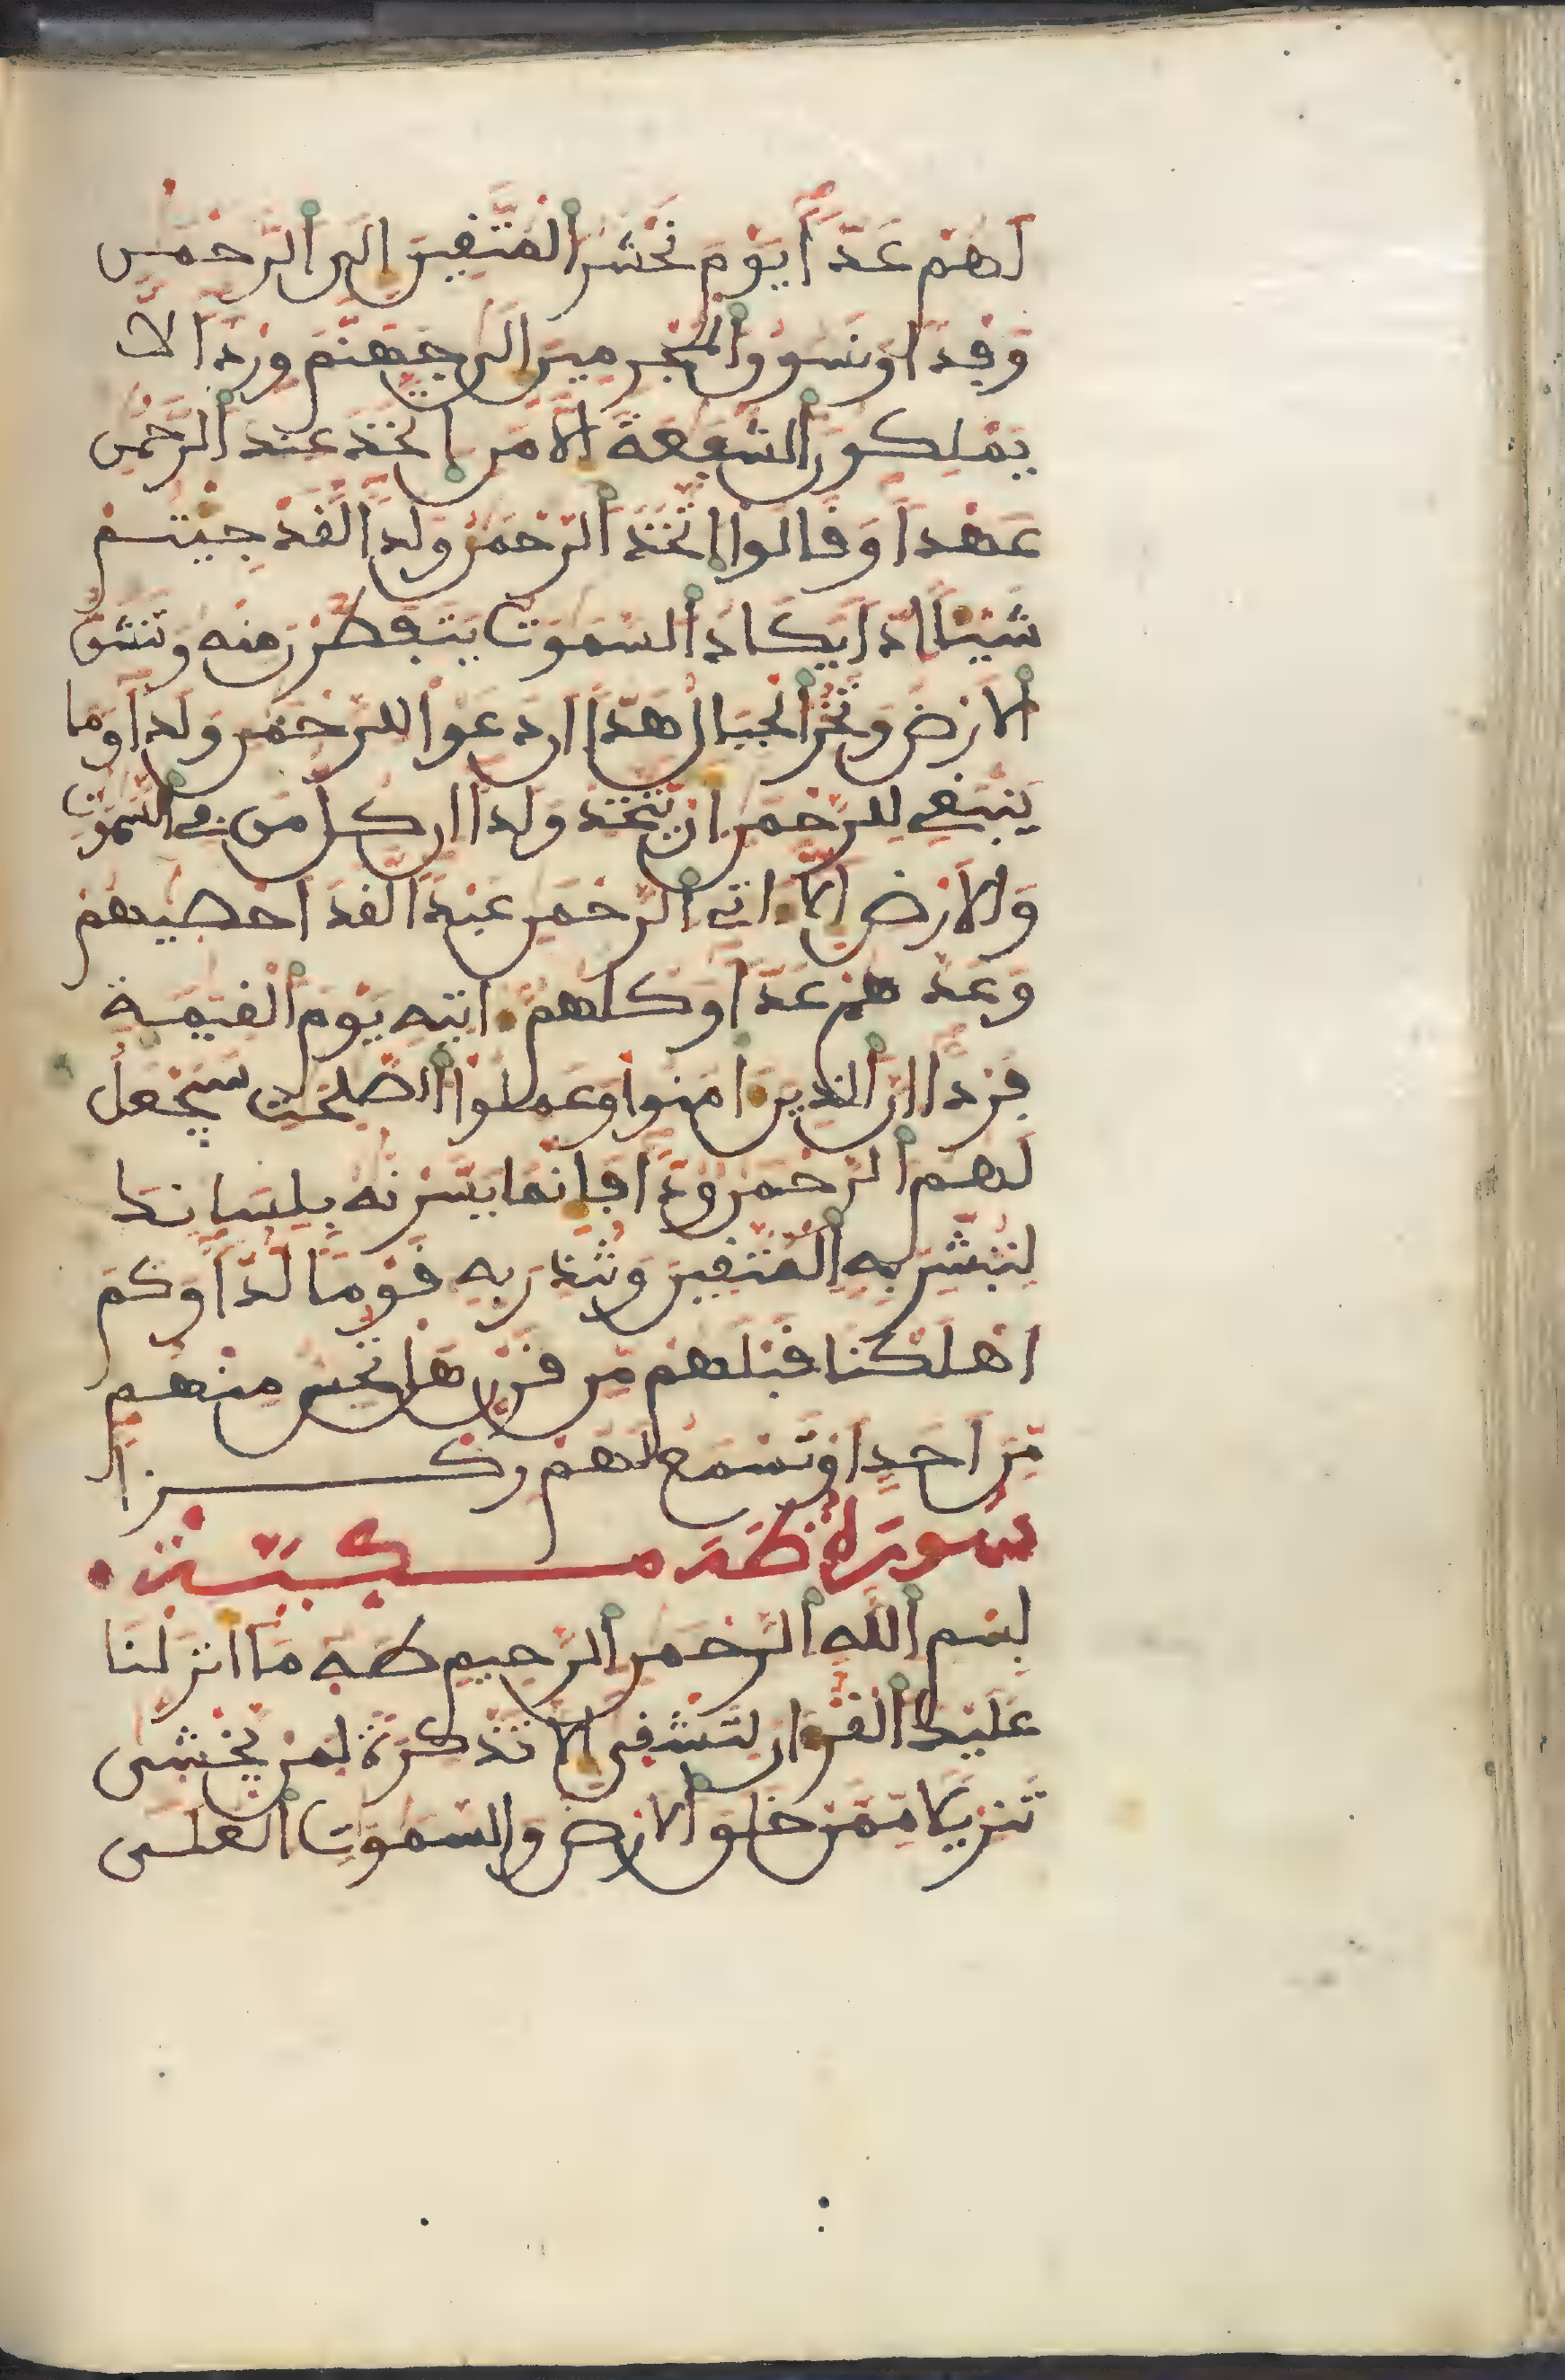 لَهُمْ عَدًّا يَوْمَ نَحْشُرُ الْمُتَّفِيرَ إِلَى الرَّحْمَٰنِ
وَفْدًا وَنَسُوقُ الْمُجْرِمِينَ إِلَىٰ جَهَنَّمَ وِرْدًا لَّا
يَمْلِكُونَ الشَّفَٰعَةَ إِلَّا مَنِ اتَّخَذَ عِندَ الرَّحْمَٰنِ
عَهْدًا وَقَالُوا اتَّخَذَ الرَّحْمَٰنُ وَلَدًا لَّقَدْ جِئْتُمْ
شَيْـًٔا إِدًّا يَكَادُ السَّمَٰوَٰتُ يَتَفَطَّرْنَ مِنْهُ وَتَنشَقُّ
الْأَرْضُ وَتَخِرُّ الْجِبَالُ هَدًّا أَن دَعَوْا لِلرَّحْمَٰنِ وَلَدًا وَمَا
يَنۢبَغِي لِلرَّحْمَٰنِ أَن يَتَّخِذَ وَلَدًا إِن كُلُّ مَن فِي السَّمَٰوَٰتِ
وَالْأَرْضِ إِلَّا ءَاتِي الرَّحْمَٰنِ عَبْدًا لَّقَدْ أَحْصَيٰهُمْ
وَعَدَّهُمْ عَدًّا وَكُلُّهُمْ ءَاتِيهِ يَوْمَ الْقِيَٰمَةِ
فَرْدًا إِنَّ الَّذِينَ ءَامَنُوا وَعَمِلُوا الصَّٰلِحَٰتِ سَيَجْعَلُ
لَهُمُ الرَّحْمَٰنُ وُدًّا فَإِنَّمَا يَسَّرْنَٰهُ بِلِسَانِكَ
لِتُبَشِّرَ بِهِ الْمُتَّقِينَ وَتُنذِرَ بِهِ قَوْمًا لُّدًّا وَكَمْ
أَهْلَكْنَا قَبْلَهُم مِّن قَرْنٍ هَلْ تُحِسُّ مِنْهُم
مِّنْ أَحَدٍ أَوْ تَسْمَعُ لَهُمْ رِكْزًا
سُورَةُ طَهَ مَكِّيَّةٌ
بِسْمِ اللَّهِ الرَّحْمَٰنِ الرَّحِيمِ طَهَ مَا أَنزَلْنَا
عَلَيْكَ الْقُرْءَانَ لِتَشْقَىٰ إِلَّا تَذْكِرَةً لِّمَنْ يَخْشَىٰ
تَنزِيلًا مِّمَّنْ خَلَقَ الْأَرْضَ وَالسَّمَٰوَٰتِ الْعُلَى